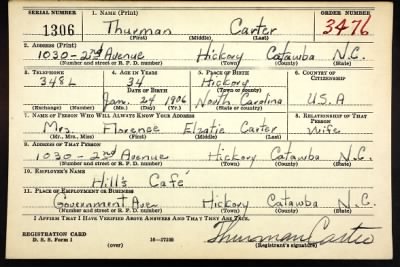 SERIAL NUMBER 1. NAME (Print) ORDER NUMBER
1306 Thurman Carter 3476
(First) (Middle) (Last)
2. ADDRESS (Print)
1030-2nd Avenue Hickory Catawba N.C.
(Number and street or R. F. D. number) (Town) (County) (State)
3. TELEPHONE 4. AGE IN YEARS 5. PLACE OF BIRTH 6. COUNTRY OF CITIZENSHIP
348L 34 Hickory
DATE OF BIRTH (Town or county)
Jan. 24 1906 North Carolina U.S.A
(Exchange) (Number) (Mo.) (Day) (Yr.) (State or country)
7. NAME OF PERSON WHO WILL ALWAYS KNOW YOUR ADDRESS 8. RELATIONSHIP OF THAT PERSON
Mrs. Florence Elzatie Carter Wife
(Mr., Mrs., Miss) (First) (Middle) (Last)
9. ADDRESS OF THAT PERSON
1030-2nd Avenue Hickory Catawba N.C.
(Number and street or R. F. D. number) (Town) (County) (State)
10. EMPLOYER'S NAME
Hill's Café
11. PLACE OF EMPLOYMENT OR BUSINESS
Government Ave Hickory Catawba N.C.
(Number and street or R. F. D. number) (Town) (County) (State)
I AFFIRM THAT I HAVE VERIFIED ABOVE ANSWERS AND THAT THEY ARE TRUE.
REGISTRATION CARD Thurman Carter
D. S. S. Form 1 (over) 16-17105 (Registrant's signature)